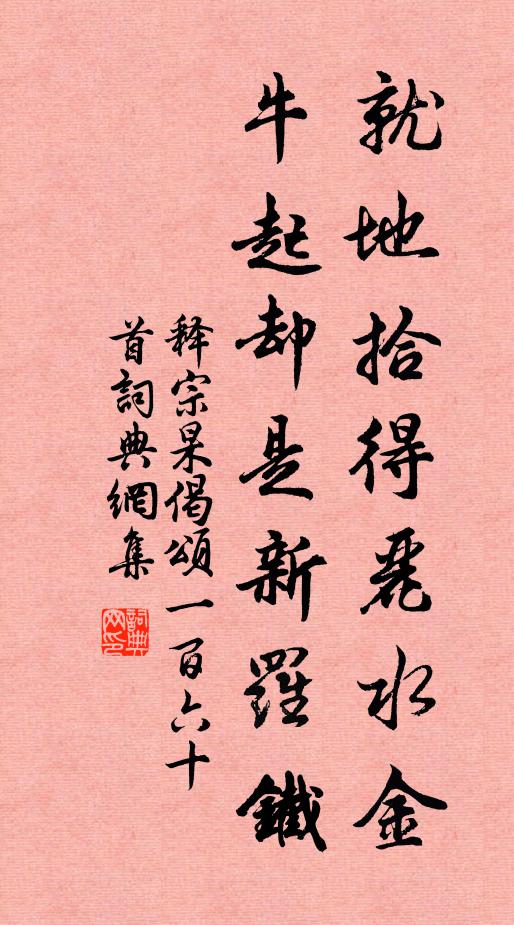 就地拾得麗水金
牛起却是新羅鐵
释宗杲偈頌一百六十
首詞典網集
詞典网印